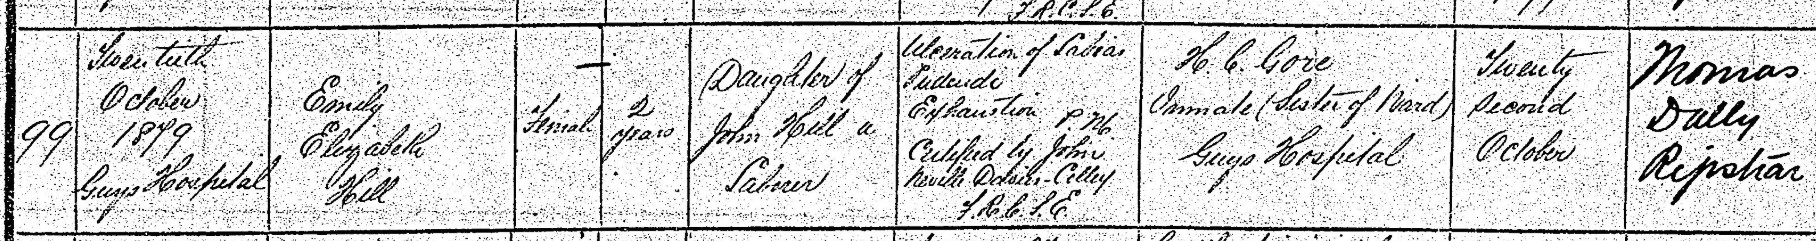 F.R.C.S.E.
99
Twentieth
October
1879
Guys Hospital
Emily
Elizabeth
Hill
Female
2
years
Daughter of
John Hill a
Laborer
Ulceration of Labias
Pudendi
Exhaustion P.M.
Certified by John
Neville Davies-Colley
F.R.C.S.E.
H. C. Gore
Inmate (Sister of Ward)
Guys Hospital
Twenty
second
October
Thomas
Dally
Registrar